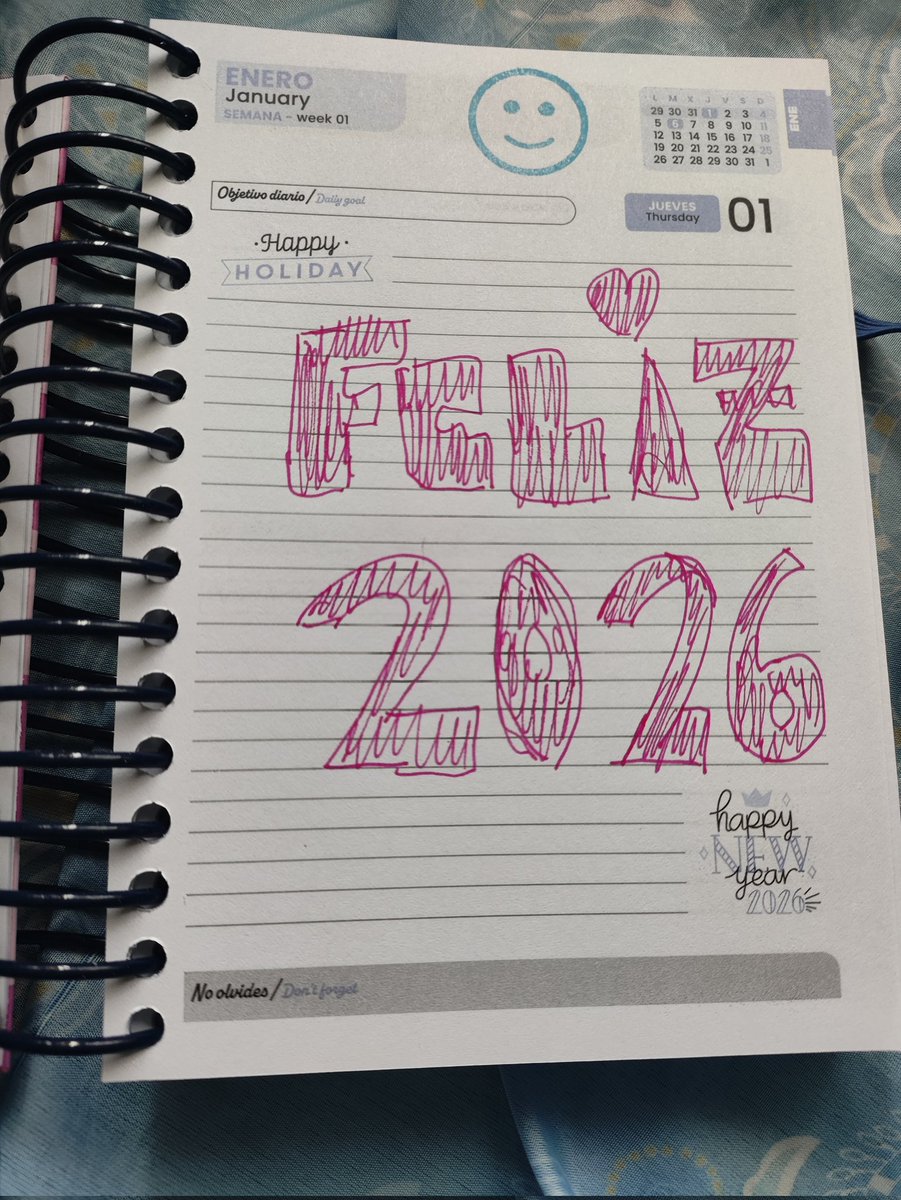 ENERO
January
SEMANA - week 01
L M X J V S D
29 30 31 1 2 3 4
5 6 7 8 9 10 11
12 13 14 15 16 17 18
19 20 21 22 23 24 25
26 27 28 29 30 31 1
ENE
Objetivo diario / Daily goal
JUEVES
Thursday
01
·Happy·
HOLIDAY
FELIZ
2026
happy
NEW
year
2026
No olvides / Don't forget